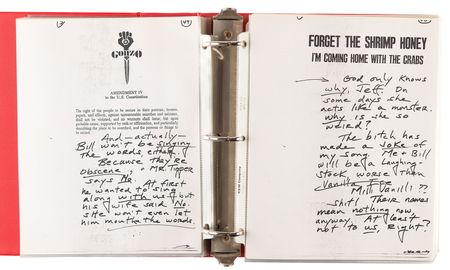 GONZO
AMENDMENT IV
to the U.S. Constitution
The right of the people to be secure in their persons, houses,
papers, and effects, against unreasonable searches and seizures,
shall not be violated, and no warrants shall issue, but upon
probable cause, supported by oath or affirmation, and particularly
describing the place to be searched, and the persons or things to
be seized.
And — actually —
Bill won't be singing
the words, either.
Because they're
obscene, or Mr. Tipper
says No. At first
he wanted to sing
along with us — but
his wife said No.
She won't even let
him mouthe the words.
FORGET THE SHRIMP HONEY
I'M COMING HOME WITH THE CRABS
God only knows
why, Jeff. On
some days she
acts like a monster.
Why is she so
weird?
The bitch has
made a joke of
my song. Me + Bill
will be a laughing
stock worse than
Vanilla Ice
Milli Vanilli??
shit! Their names
mean nothing now,
anyway. At least
not to us, Right?